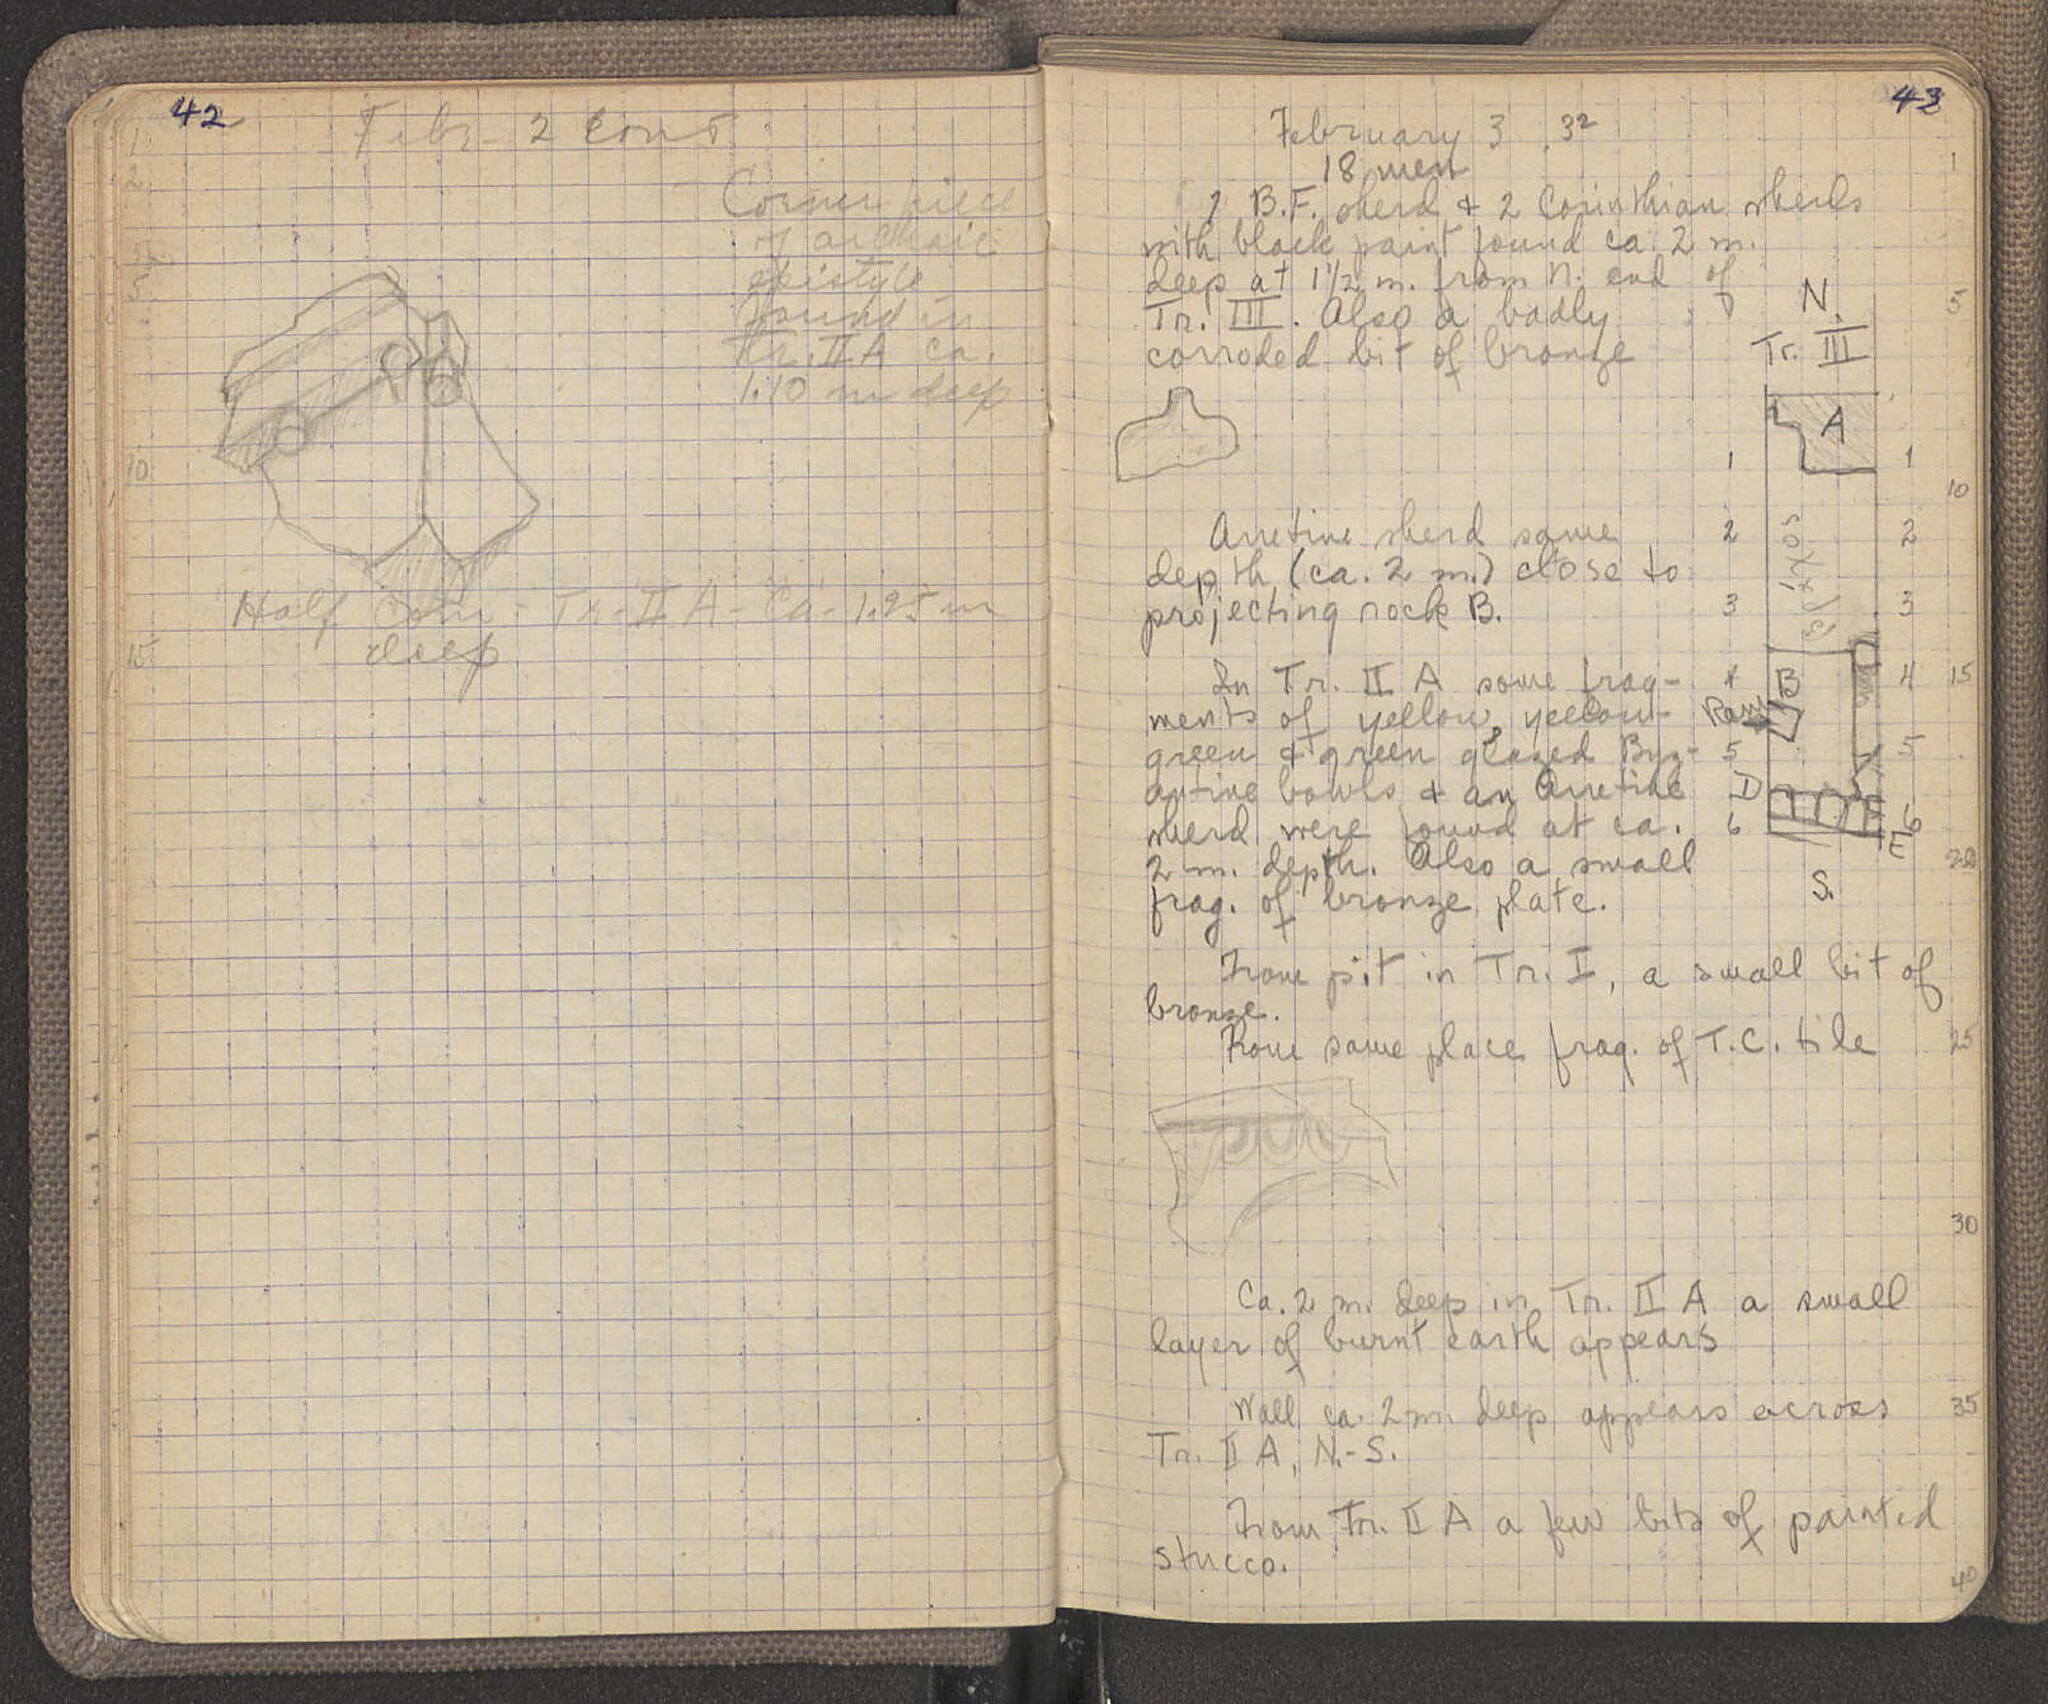 42
Feb. 2 Cont.
1
2
5
10
15
Corner piece
of archaic
epistyle
found in
Tr. II A ca.
1.10 m deep
Half Coin - Tr. II A - Ca. 1.25 m
deep
43
February 3 32
18 men
1 B.F. sherd & 2 Corinthian sherds
with black paint found ca. 2 m.
deep at 1 1/2 m. from N. end of
Tr. III. Also a badly
corroded bit of bronze
Arretine sherd same
depth (ca. 2 m.) close to
projecting rock B.
In Tr. II A some frag-
ments of yellow, yellow-
green & green glazed Byz-
antine bowls & an Arretine
sherd were found at ca.
2 m. depth. Also a small
frag. of bronze plate.
From pit in Tr. I, a small bit of
bronze.
From same place frag. of T.C. tile
Ca. 2 m. deep in Tr. II A a small
layer of burnt earth appears
Wall ca. 2 m. deep appears across
Tr. II A, N.-S.
From Tr. II A a few bits of painted
stucco.
N.
Tr. III
A
1 1
2 2
3 3
4 B 4
5 5
D
6 6
E
S.
1
5
10
15
20
25
30
35
40